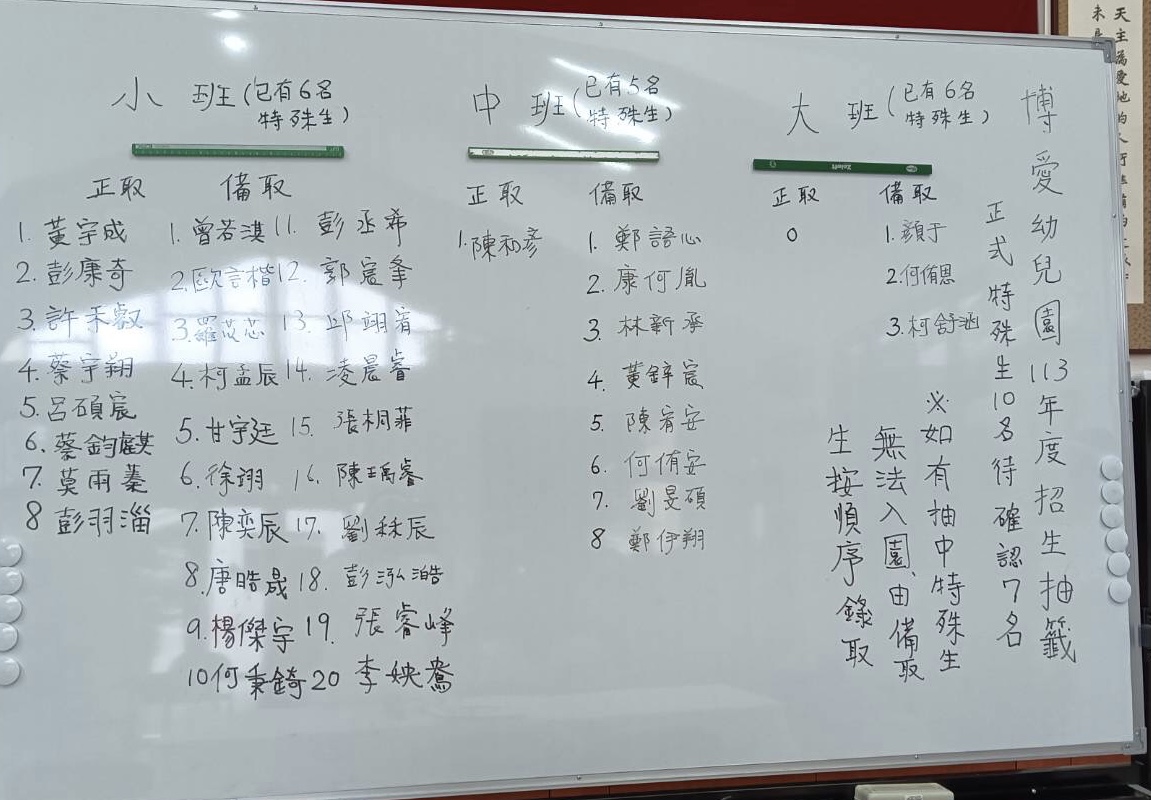 博愛幼兒園113年度招生抽籤
正式特殊生10名待確認7名
※如有抽中特殊生
無法入園、由備取
生按順序錄取
小班(已有6名
特殊生)
正取
1. 黃宇成
2. 彭康奇
3. 許禾叡
4. 蔡宇翔
5. 呂碩宸
6. 蔡鈞麒
7. 莫雨蓁
8 彭羽淄
備取
1. 曾若淇
2. 歐言楷
3. 羅苡芯
4. 柯孟辰
5. 甘宇廷
6. 徐翊
7. 陳奕辰
8. 唐晧晟
9. 楊傑宇
10 何秉錡
11. 彭丞希
12. 郭宸夆
13. 邱翊宥
14. 凌晨睿
15. 張桐菲
16. 陳瑀睿
17. 劉秝辰
18. 彭泓澔
19. 張睿峰
20 李姎鴦
中班(已有5名
特殊生)
正取
1. 陳和彥
備取
1. 鄭語心
2. 康何胤
3. 林新承
4. 黃鋅宸
5. 陳宥安
6. 何侑安
7. 劉旻碩
8 鄭伊翔
大班(已有6名
特殊生)
正取
0
備取
1. 顏于
2. 何侑恩
3. 柯舒涵
天主為愛地的人